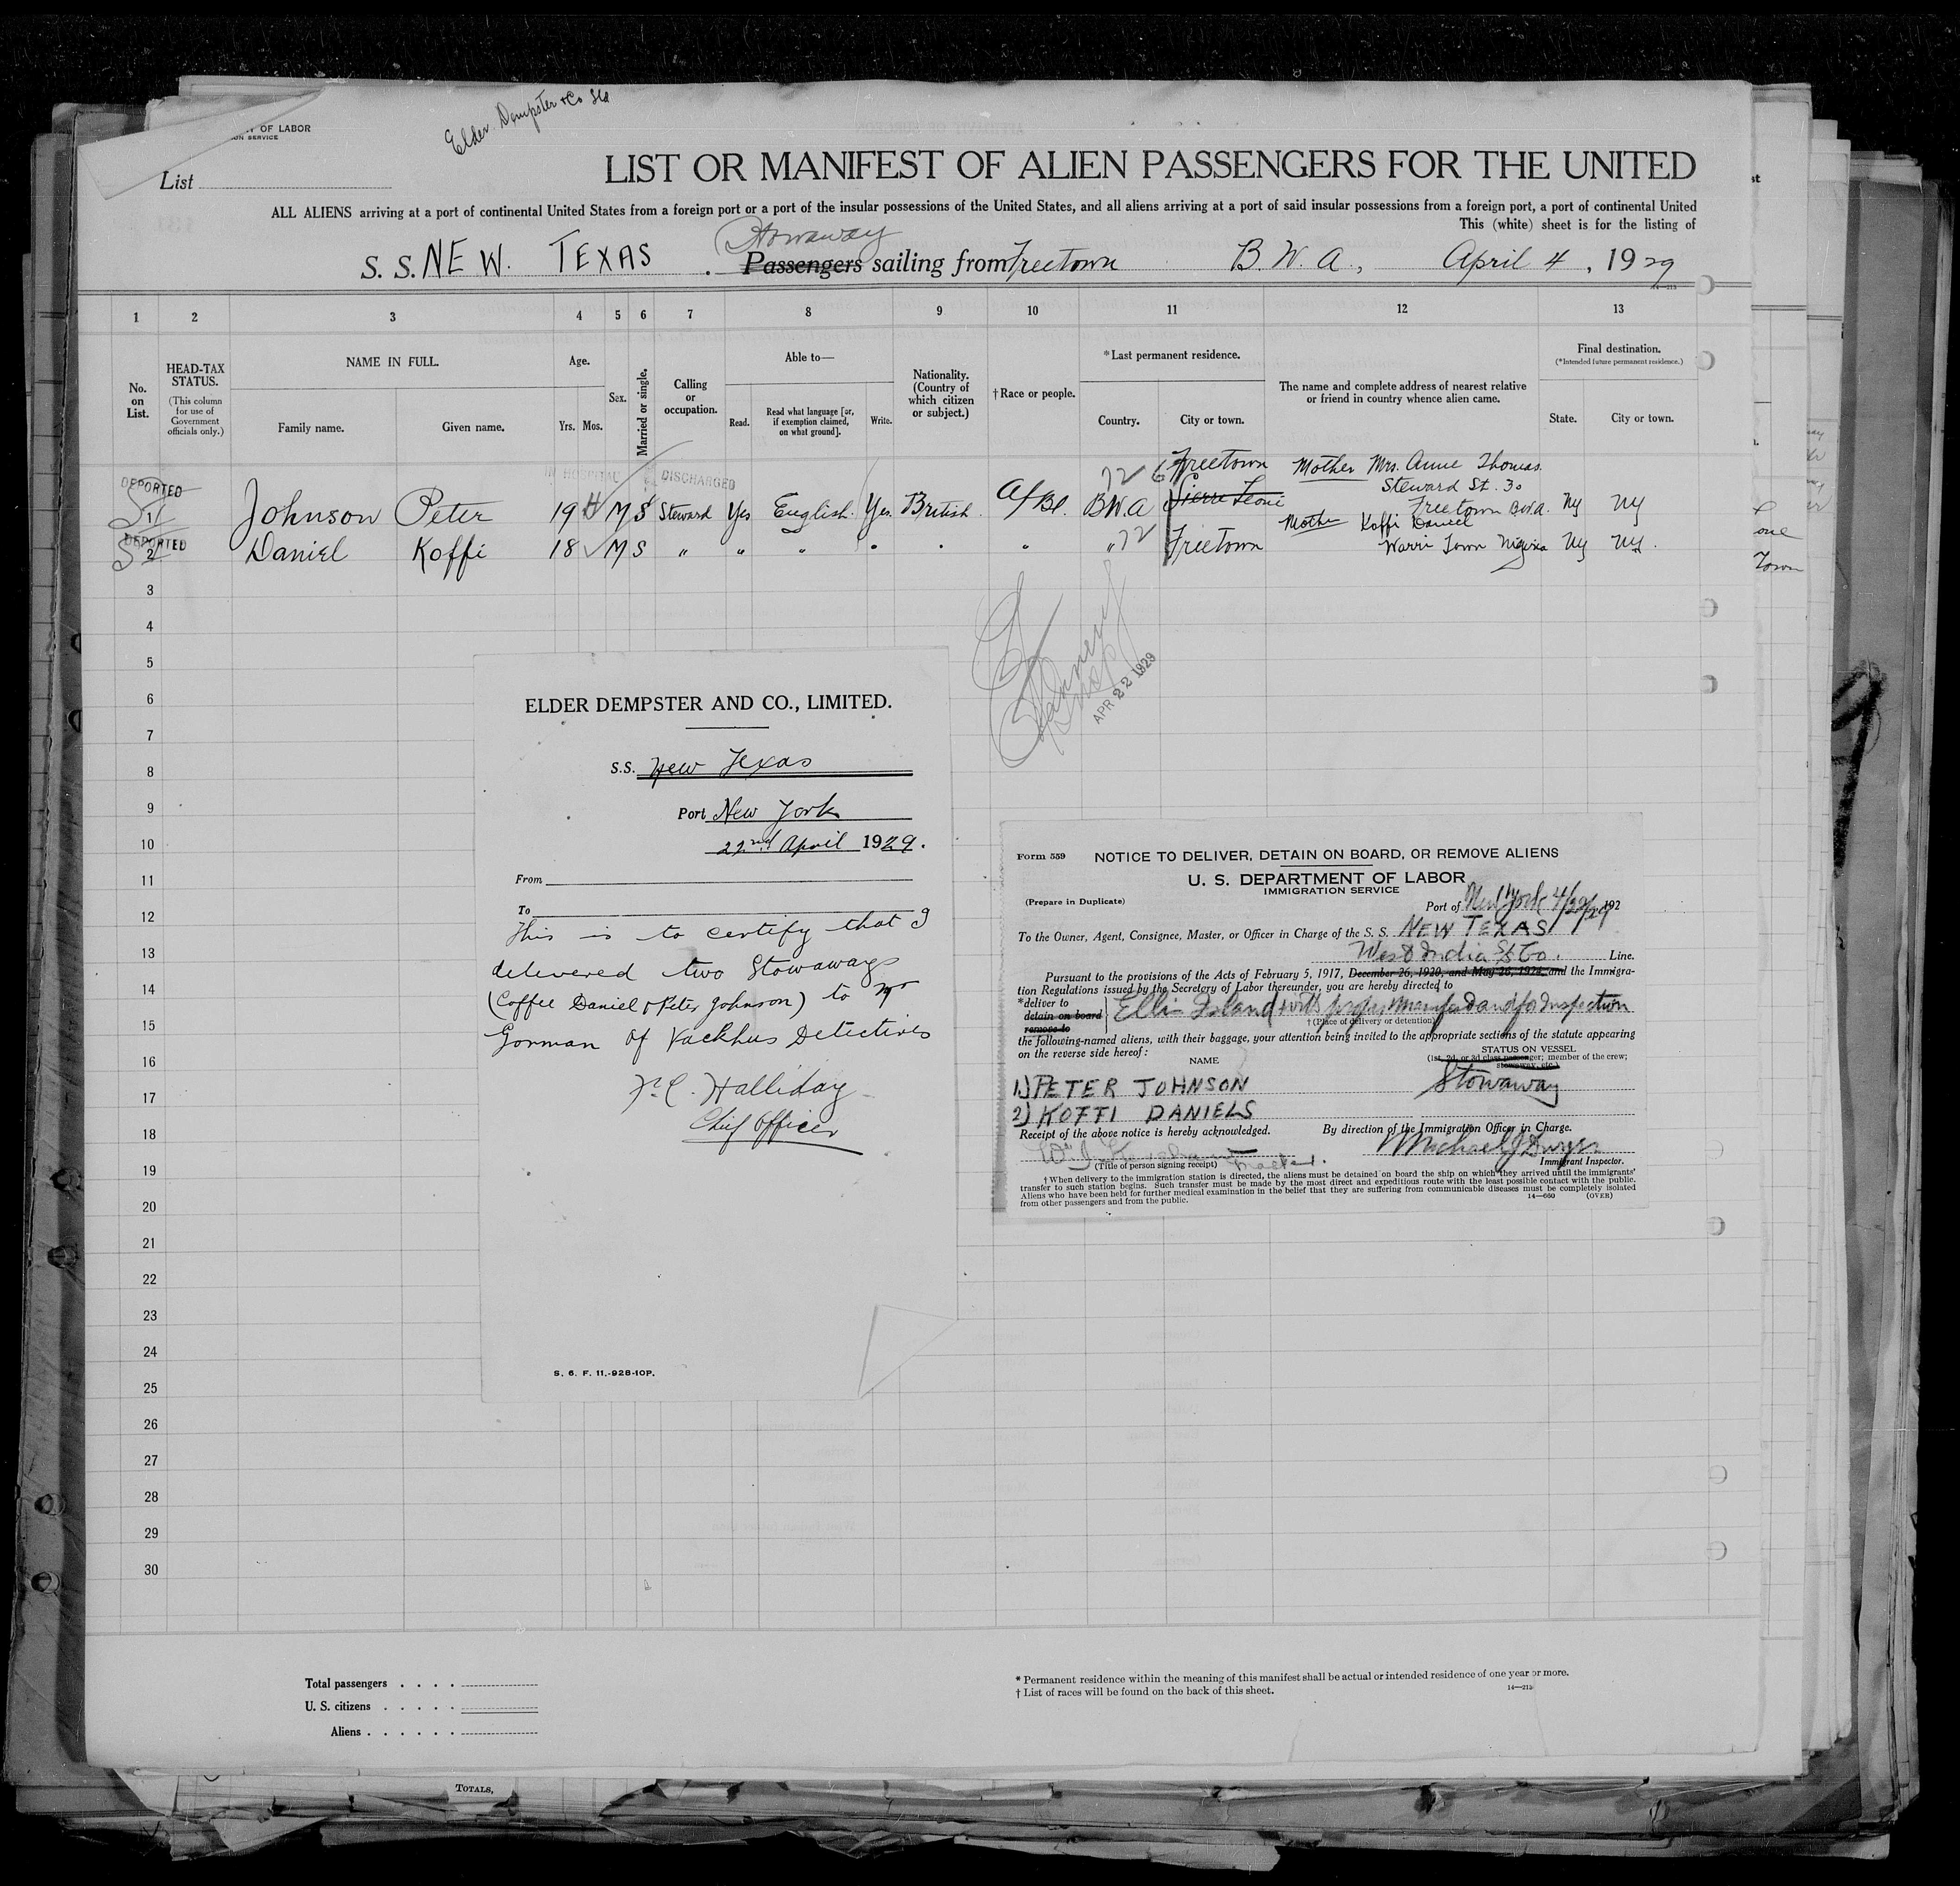 OF LABOR
ON SERVICE
Elder Dempster & Co Ltd
List
LIST OR MANIFEST OF ALIEN PASSENGERS FOR THE UNITED
ALL ALIENS arriving at a port of continental United States from a foreign port or a port of the insular possessions of the United States, and all aliens arriving at a port of said insular possessions from a foreign port, a port of continental United
This (white) sheet is for the listing of
Stowaway
S. S. NEW. TEXAS . Passengers sailing from Freetown B. W. A., April 4, 1929
14—213
1 2 3 4 5 6 7 8 9 10 11 12 13
No. on List.
HEAD-TAX STATUS.
(This column for use of Government officials only.)
NAME IN FULL.
Family name. Given name.
Age.
Yrs. Mos.
Sex.
Married or single.
Calling or occupation.
Able to—
Read. Read what language [or, if exemption claimed, on what ground]. Write.
Nationality. (Country of which citizen or subject.)
†Race or people.
*Last permanent residence.
Country. City or town.
The name and complete address of nearest relative or friend in country whence alien came.
Final destination.
(*Intended future permanent residence.)
State. City or town.
IN HOSPITAL DISCHARGED
72 Freetown Mother Mrs. Anne Thomas.
DEPORTED Steward St. 30
1 Johnson Peter 19 M S Steward Yes English. Yes. British. Af/Bl. B.W.A Sierra Leone Freetown B.W.A. Ny Ny
DEPORTED Mother Koffi Daniel
2 Daniel Koffi 18 M S " " " " " " " 72 Freetown Warri Town Nigeria Ny Ny.
Town
3
4
5
6
7
8
9
10
11
12
13
14
15
16
17
18
19
20
21
22
23
24
25
26
27
28
29
30
APR 22 1929
ELDER DEMPSTER AND CO., LIMITED.
S.S. New Texas
Port New York
22nd April 1929.
From
To
This is to certify that I
delivered two Stowaways
(Coffee Daniel & Peter Johnson) to Mr
Gorman of Vackhus Detectives
F. C. Halliday
Chief Officer
S. 6. F. 11.-928-10P.
Form 559 NOTICE TO DELIVER, DETAIN ON BOARD, OR REMOVE ALIENS
U. S. DEPARTMENT OF LABOR
IMMIGRATION SERVICE
(Prepare in Duplicate)
Port of New York 4/22/29 192
To the Owner, Agent, Consignee, Master, or Officer in Charge of the S. S. NEW TEXAS
West India SS Co. Line.
Pursuant to the provisions of the Acts of February 5, 1917, December 26, 1920, and May 26, 1924, and the Immigra-
tion Regulations issued by the Secretary of Labor thereunder, you are hereby directed to
*deliver to
detain on board
remove to
Ellis Island with proper manifest and for Inspection
†(Place of delivery or detention)
the following-named aliens, with their baggage, your attention being invited to the appropriate sections of the statute appearing
on the reverse side hereof:
NAME
STATUS ON VESSEL
(1st, 2d, or 3d class passenger; member of the crew; stowaway, etc.)
1) PETER JOHNSON Stowaway
2) KOFFI DANIELS
Receipt of the above notice is hereby acknowledged. By direction of the Immigration Officer in Charge.
Michael J Dwyer
(Title of person signing receipt) Immigrant Inspector.
†When delivery to the immigration station is directed, the aliens must be detained on board the ship on which they arrived until the immigrants'
transfer to such station begins. Such transfer must be made by the most direct and expeditious route with the least possible contact with the public.
Aliens who have been held for further medical examination in the belief that they are suffering from communicable diseases must be completely isolated
from other passengers and from the public. 14—660 (OVER)
Total passengers
U. S. citizens
Aliens
* Permanent residence within the meaning of this manifest shall be actual or intended residence of one year or more.
† List of races will be found on the back of this sheet. 14—213
TOTALS,